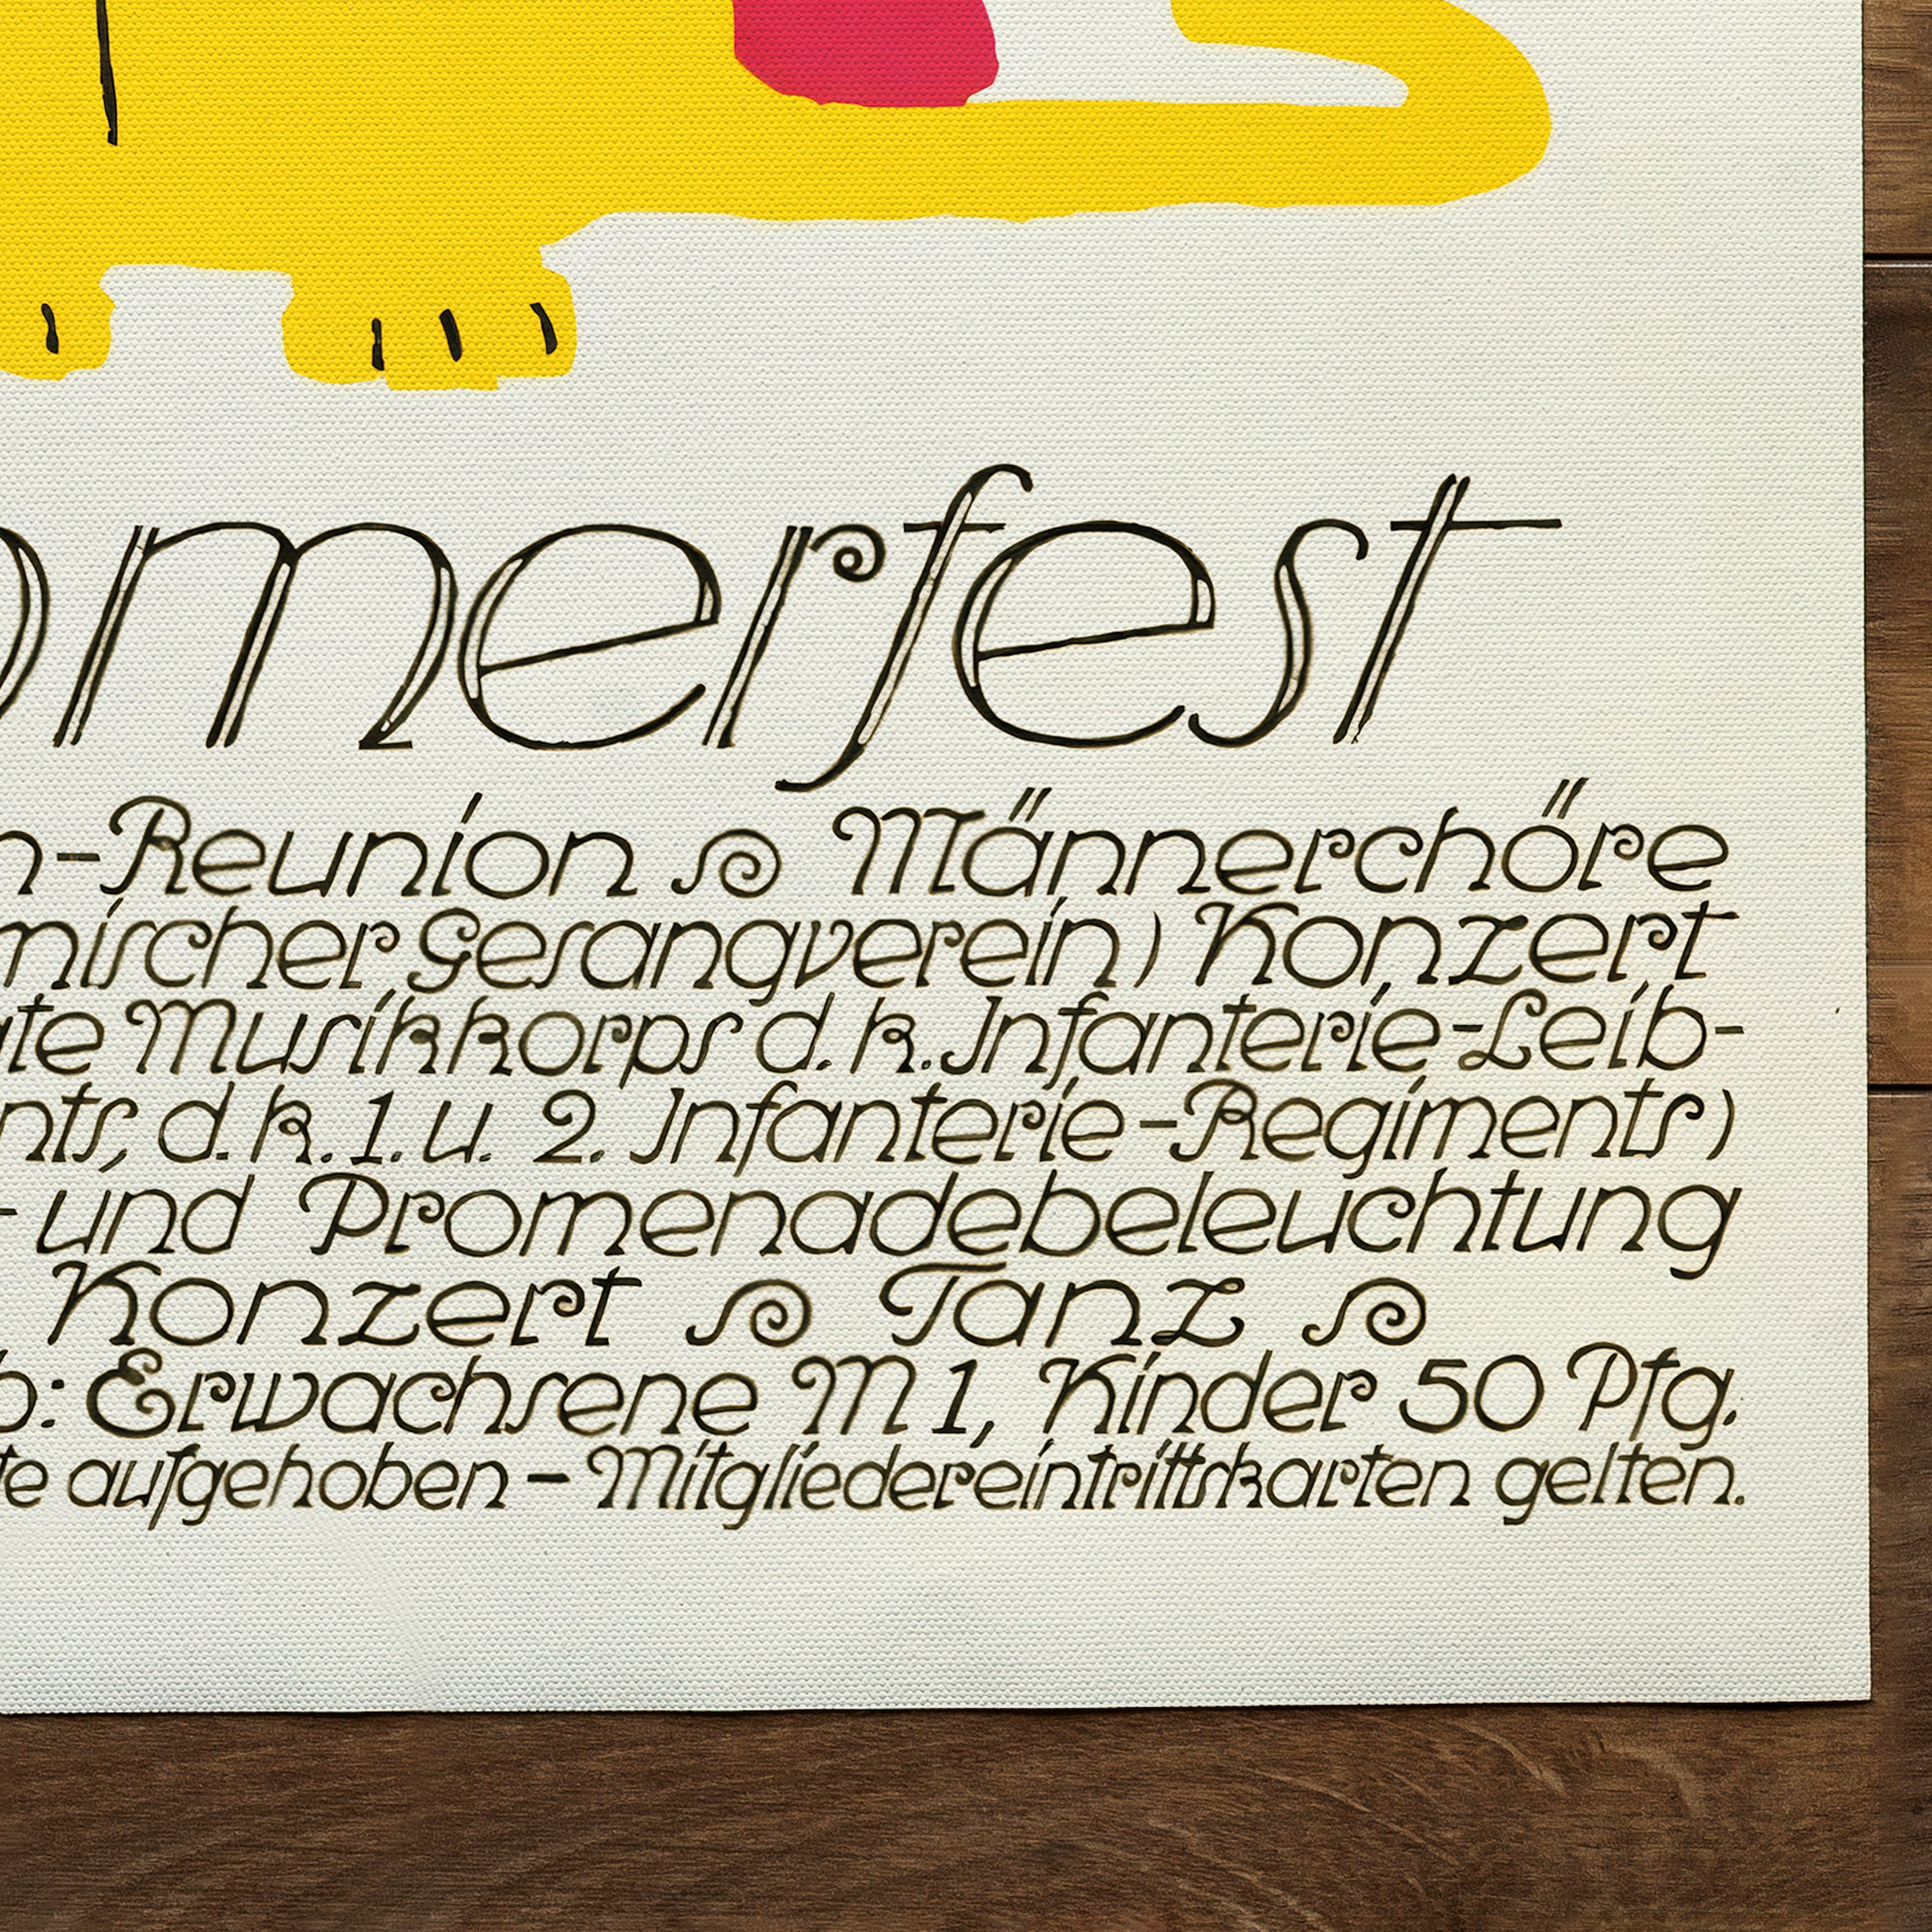 merfest
n-Reunion Männerchöre
mischer Gesangverein) Konzert
te Musikkorps d. k. Infanterie-Leib-
nts, d. k. 1. u. 2. Infanterie-Regiments)
- und Promenadebeleuchtung
Konzert Tanz
: Erwachsene M 1, Kinder 50 Pfg.
te aufgehoben – Mitgliedereintrittskarten gelten.